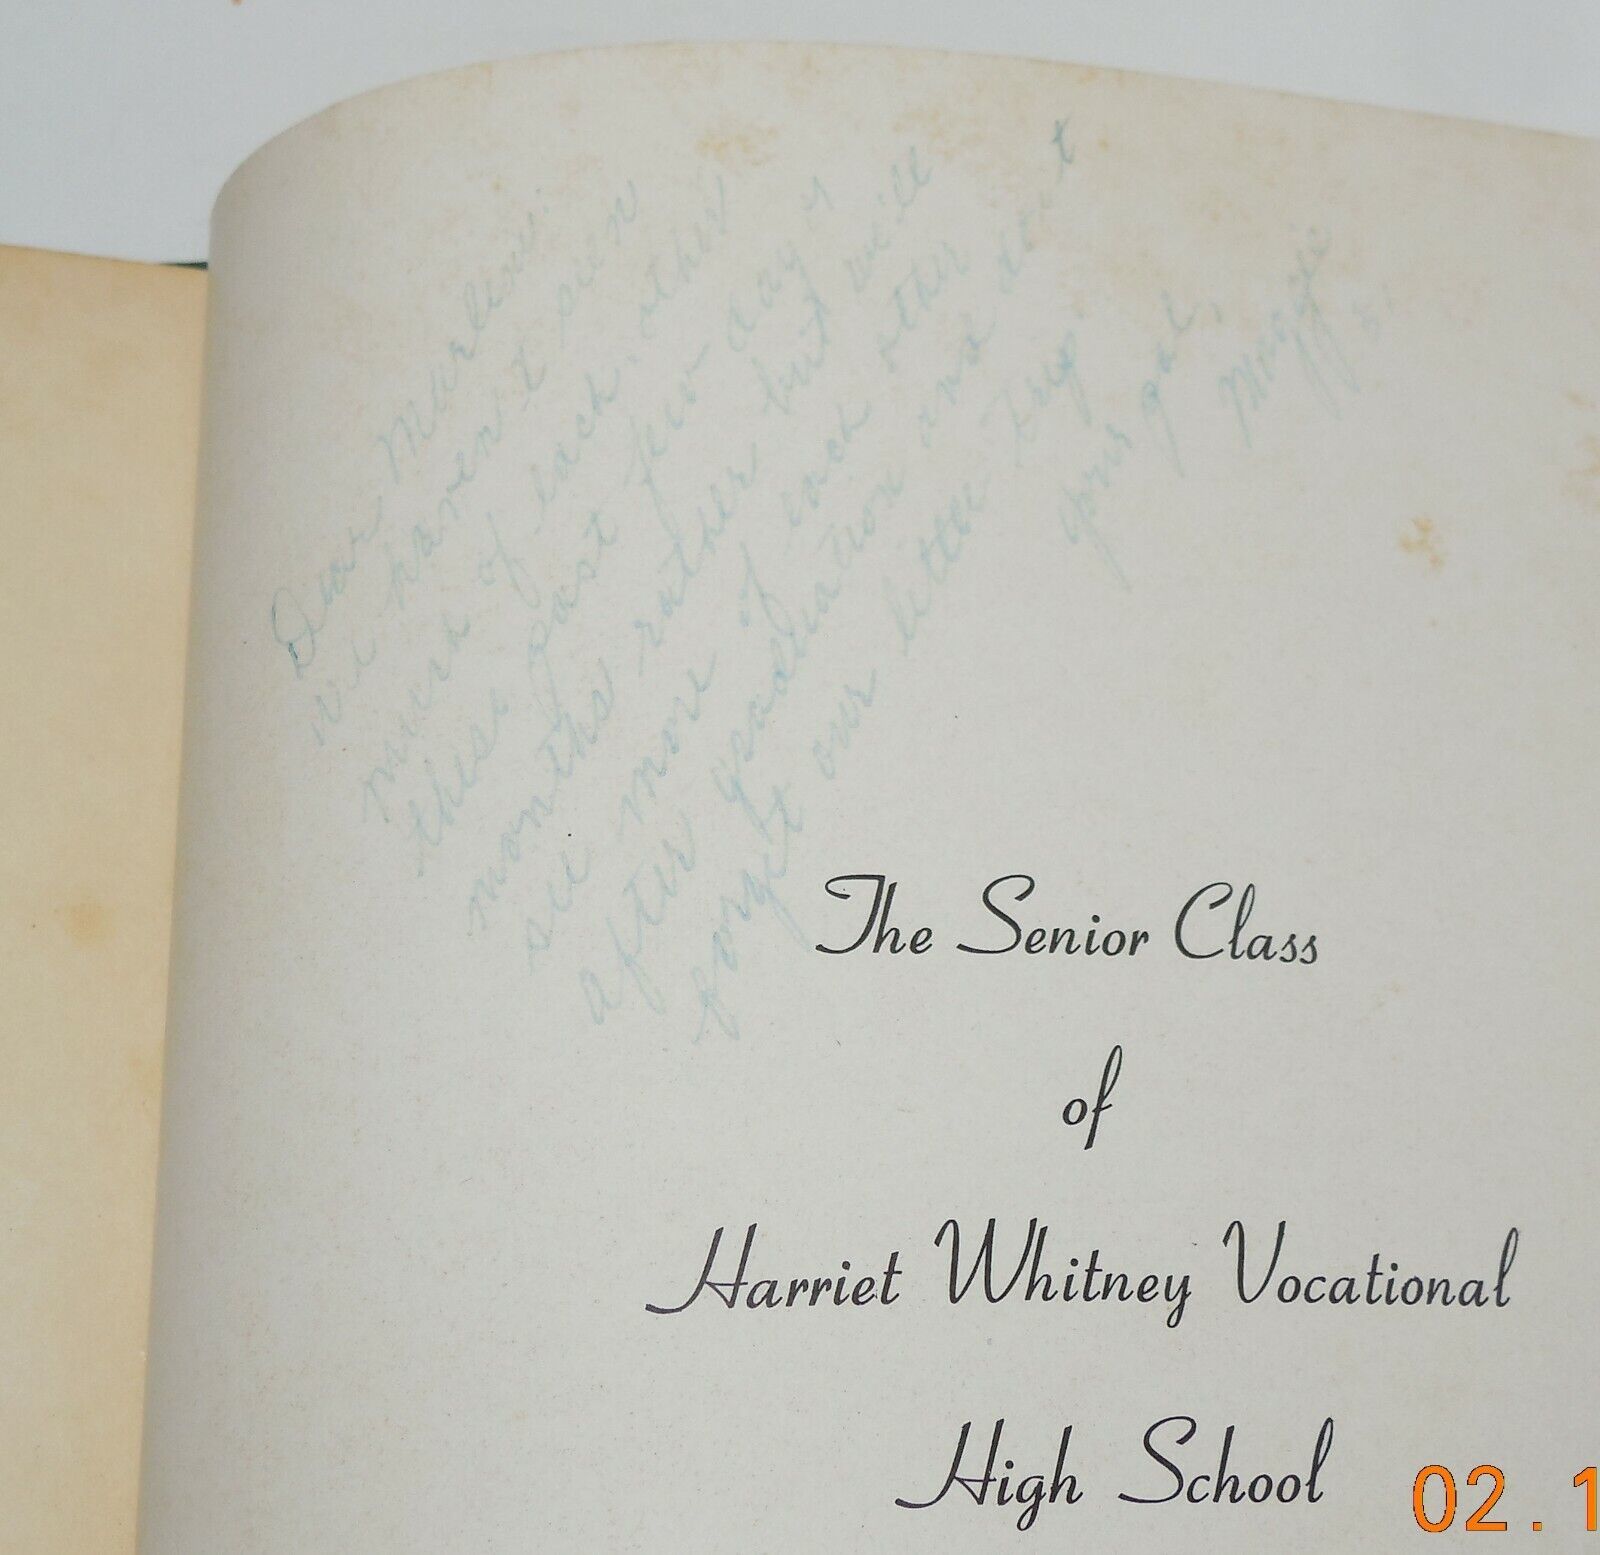 Dear Marlene:
we haven't seen
much of each other
these past few days
months rather but will
see more of each other
after graduation and don't
forget our little trip.
your pal,
Maggie
The Senior Class
of
Harriet Whitney Vocational
High School
02.1